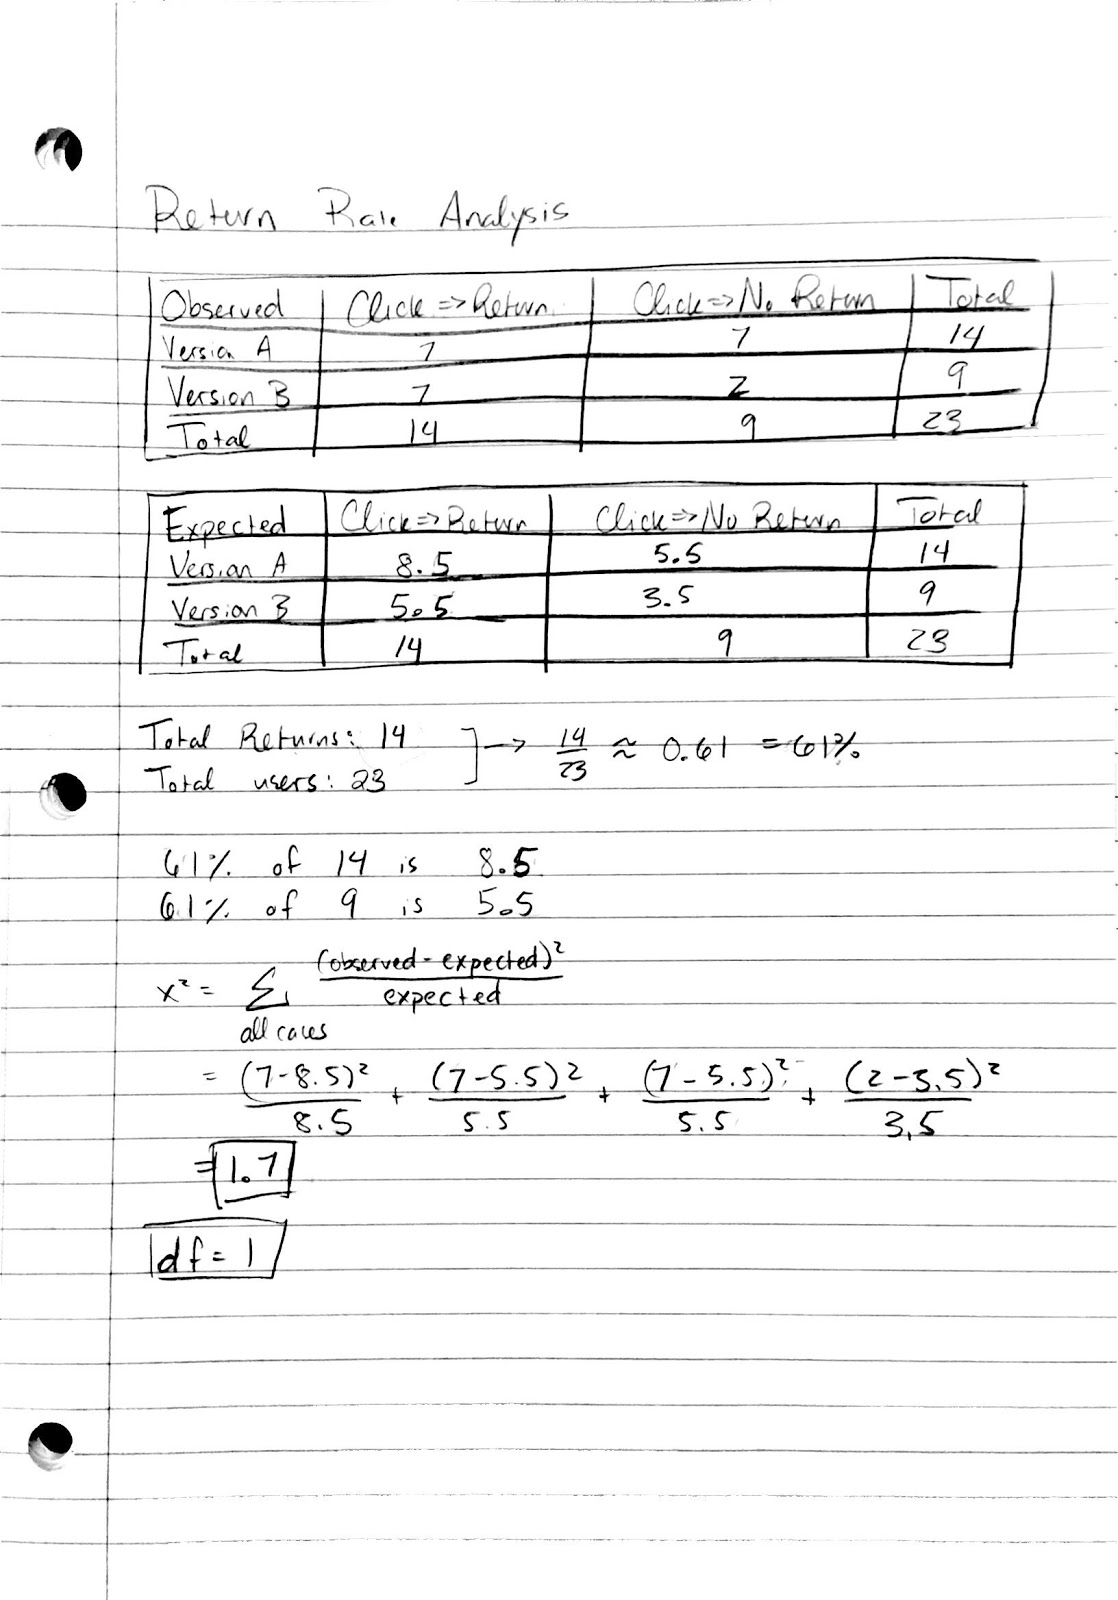 Return Rate Analysis
Observed Click => Return Click => No Return Total
Version A 7 7 14
Version B 7 2 9
Total 14 9 23
Expected Click => Return Click => No Return Total
Version A 8.5 5.5 14
Version B 5.5 3.5 9
Total 14 9 23
Total Returns: 14 ] → 14/23 ≈ 0.61 = 61%
Total users: 23
61% of 14 is 8.5
61% of 9 is 5.5
x² = Σ (observed - expected)² / expected
all cases
= (7-8.5)²/8.5 + (7-5.5)²/5.5 + (7-5.5)²/5.5 + (2-3.5)²/3.5
= 1.7
df = 1